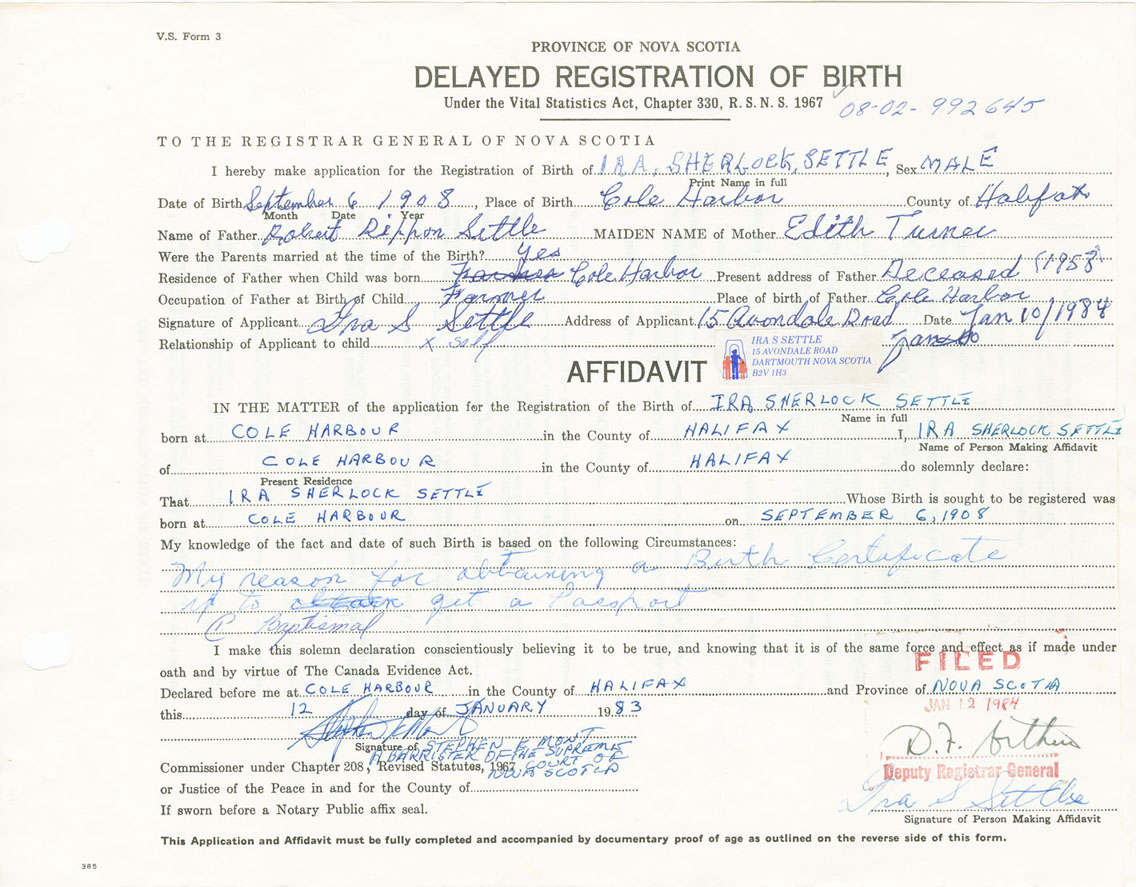 V.S. Form 3
PROVINCE OF NOVA SCOTIA
DELAYED REGISTRATION OF BIRTH
Under the Vital Statistics Act, Chapter 330, R. S. N. S. 1967 08-02-992645
TO THE REGISTRAR GENERAL OF NOVA SCOTIA
I hereby make application for the Registration of Birth of IRA, SHERLOCK, SETTLE, Sex MALE
Print Name in full
Date of Birth September 6 1908, Place of Birth Cole Harbor County of Halifax
Month Date Year
Name of Father Robert Rippon Settle MAIDEN NAME of Mother Edith Turner
Were the Parents married at the time of the Birth? Yes
Residence of Father when Child was born Cole Harbor Present address of Father Deceased (1958)
Occupation of Father at Birth of Child Farmer Place of birth of Father Cole Harbor
Signature of Applicant Ira S Settle Address of Applicant 15 Avondale Road Date Jan 10/1984
Relationship of Applicant to child x self
IRA S SETTLE
15 AVONDALE ROAD
DARTMOUTH NOVA SCOTIA
B2V 1H3
AFFIDAVIT
IN THE MATTER of the application for the Registration of the Birth of IRA SHERLOCK SETTLE
Name in full
born at COLE HARBOUR in the County of HALIFAX I, IRA SHERLOCK SETTLE
Name of Person Making Affidavit
of COLE HARBOUR in the County of HALIFAX do solemnly declare:
Present Residence
That IRA SHERLOCK SETTLE Whose Birth is sought to be registered was
born at COLE HARBOUR on SEPTEMBER 6, 1908
My knowledge of the fact and date of such Birth is based on the following Circumstances:
My reason for obtaining a Birth Certificate
is to get a Passport
Baptismal
I make this solemn declaration conscientiously believing it to be true, and knowing that it is of the same force and effect as if made under
oath and by virtue of The Canada Evidence Act.
FILED
Declared before me at COLE HARBOUR in the County of HALIFAX and Province of NOVA SCOTIA
this 12 day of JANUARY 1983
JAN 12 1984
Signature of STEPHEN F MONT
A BARRISTER OF THE SUPREME
Commissioner under Chapter 208, Revised Statutes, 1967 COURT OF
NOVA SCOTIA
Deputy Registrar General
or Justice of the Peace in and for the County of
Ira S Settle
If sworn before a Notary Public affix seal.
Signature of Person Making Affidavit
This Application and Affidavit must be fully completed and accompanied by documentary proof of age as outlined on the reverse side of this form.
385